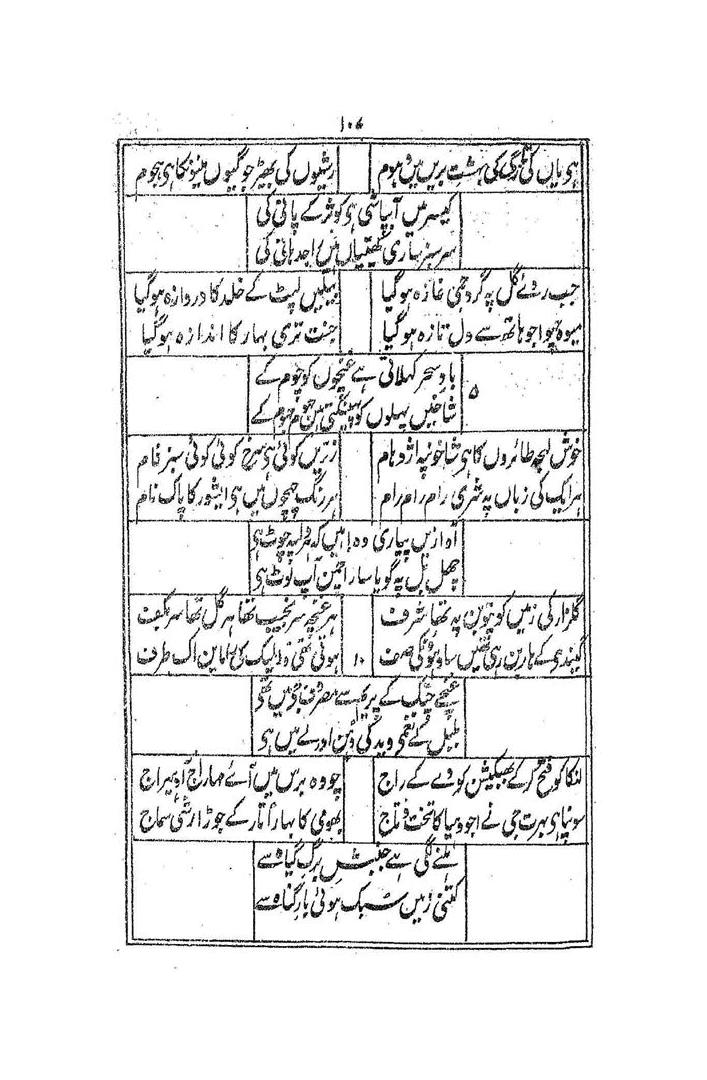 ۱۰۷
ہی یاں کی تازگی کی بہشتِ بریں میں دھوم رشیوں کی بھیڑ جوگیوں منیونکا ہی ہجوم
کیسر میں آبپاشی ہی کوثر کے پانی کی
سرسبز ساری کھیتیاں ہیں راجدہانی کی
جب روئے گل پہ گرد جمی غازہ ہو گیا بیلیں لپٹ کے خلد کا دروازہ ہو گیا
میوہ چھوا جو ہاتھ سے دل تازہ ہو گیا جنت تری بہار کا اندازہ ہو گیا
بادِ سحر کہلاتی ہے غنچوں کو چوم کے
۵
شاخیں پہلوں کو پھینکتی ہیں جھوم جھوم کے
خوش لہجہ طائروں کا ہی شاخونپہ اژدہام زریں کوئی ہی سرخ کوئی کوئی سبز فام
ہر ایک کی زباں پہ شری رام رام رام ہر رنگ چہچوں میں ہی ایشور کا پاک نام
آوازیں پیاری وہ ہیں کہ ہر اک پہ چوٹ ہی
چھل بل پہ گویا سارا چمن آپ لوٹ ہی
گلزار کی زمیں کو تھا شرف ہر غنچہ سر بجیب تھا ہر گل تھا سر بکف
گیندی کے ہار بن رہی تھیں کی صف ۱۰ ہوتی تھی اک طرف
غنچے چٹک کے
بلبل کے نغمے وید کی دُہن اور لے میں ہی
لنکا کو فتح کر کے بھبیکشن کو دے کے راج چودہ برس میں آئے مہاراج آدھیراج
سونپا ہی بہرت جی نے اجودھیا کا تخت و تاج بھومی کا بہار اُتار کے جوڑا رشی سماج
ملنے لگی ہے جنبشِ برگِ گیاہ سے
کتنی زمین سبک ہوئی بارِ گناہ سے